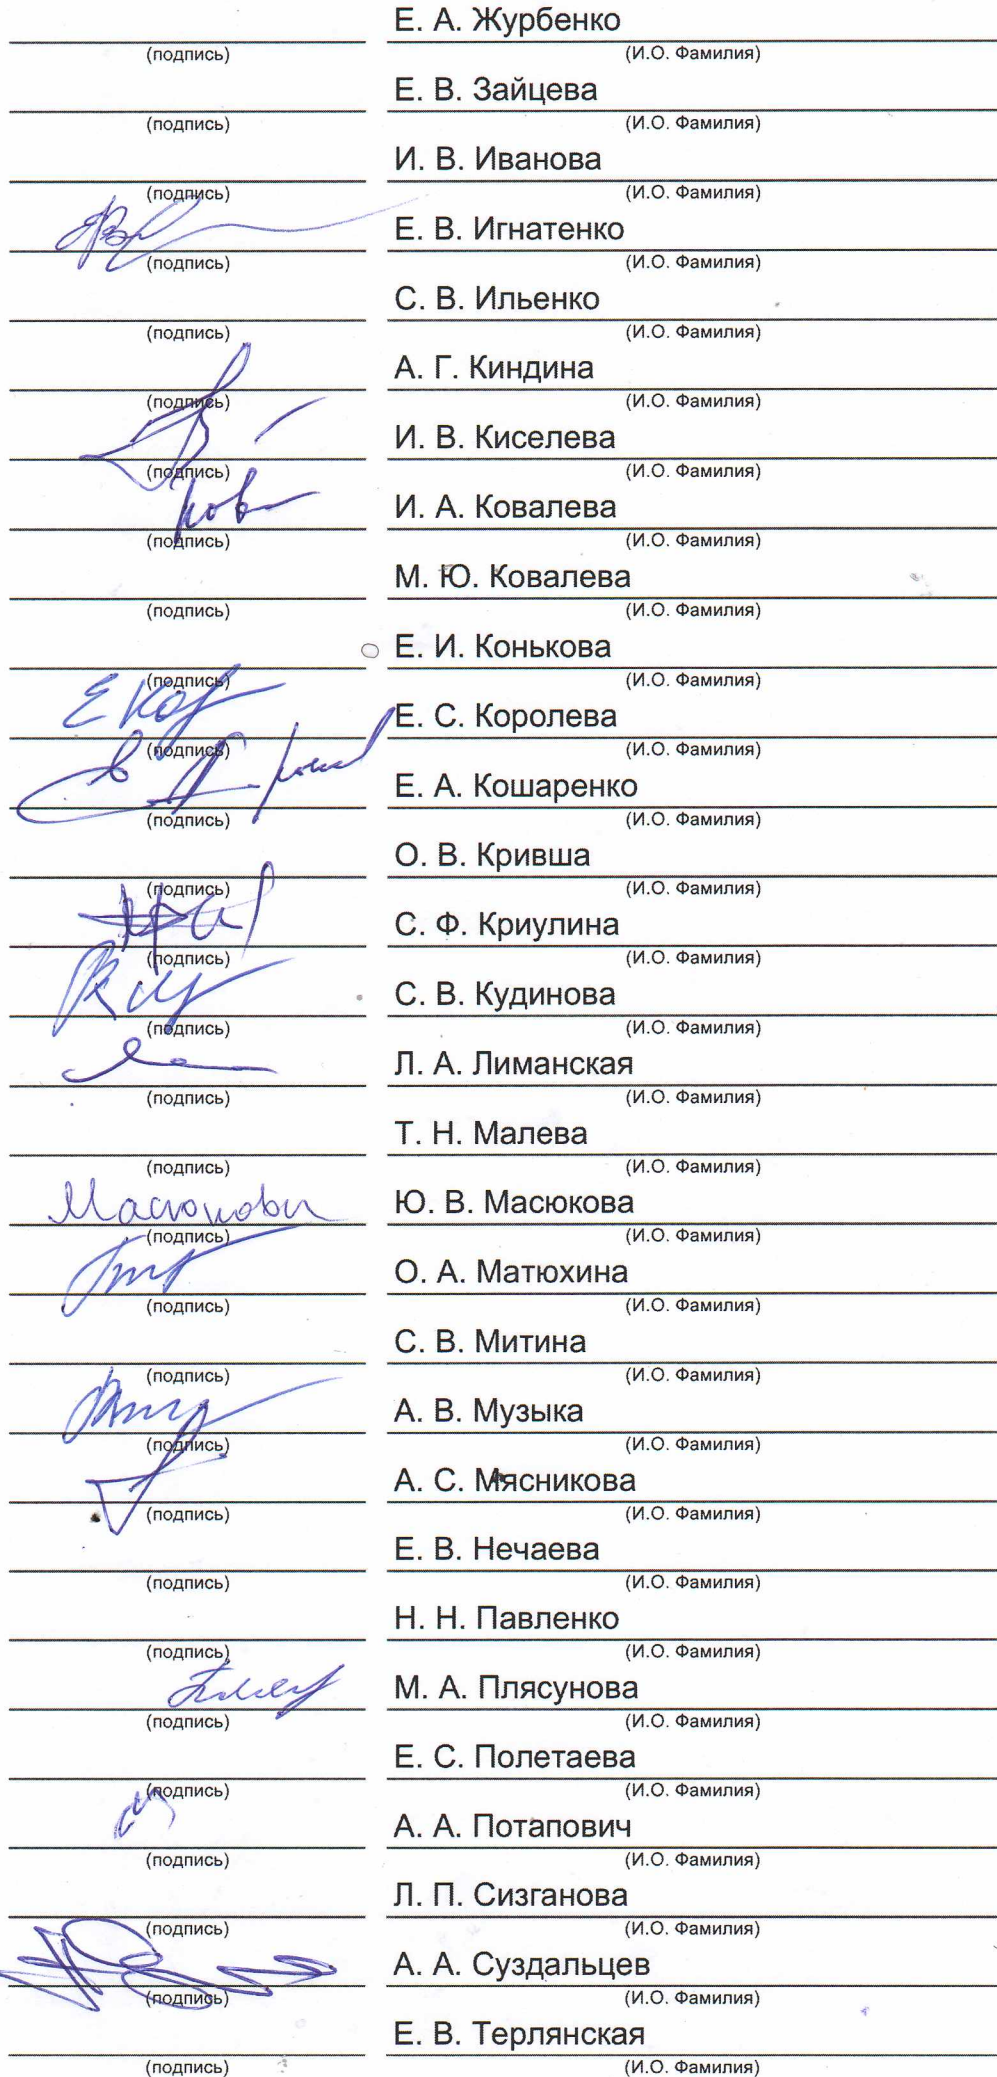 Е. А. Журбенко
(подпись) (И.О. Фамилия)
Е. В. Зайцева
(подпись) (И.О. Фамилия)
И. В. Иванова
(подпись) (И.О. Фамилия)
Е. В. Игнатенко
(подпись) (И.О. Фамилия)
С. В. Ильенко
(подпись) (И.О. Фамилия)
А. Г. Киндина
(подпись) (И.О. Фамилия)
И. В. Киселева
(подпись) (И.О. Фамилия)
И. А. Ковалева
(подпись) (И.О. Фамилия)
М. Ю. Ковалева
(подпись) (И.О. Фамилия)
Е. И. Конькова
(подпись) (И.О. Фамилия)
Е. С. Королева
(подпись) (И.О. Фамилия)
Е. А. Кошаренко
(подпись) (И.О. Фамилия)
О. В. Кривша
(подпись) (И.О. Фамилия)
С. Ф. Криулина
(подпись) (И.О. Фамилия)
С. В. Кудинова
(подпись) (И.О. Фамилия)
Л. А. Лиманская
(подпись) (И.О. Фамилия)
Т. Н. Малева
(подпись) (И.О. Фамилия)
Ю. В. Масюкова
(подпись) (И.О. Фамилия)
О. А. Матюхина
(подпись) (И.О. Фамилия)
С. В. Митина
(подпись) (И.О. Фамилия)
А. В. Музыка
(подпись) (И.О. Фамилия)
А. С. Мясникова
(подпись) (И.О. Фамилия)
Е. В. Нечаева
(подпись) (И.О. Фамилия)
Н. Н. Павленко
(подпись) (И.О. Фамилия)
М. А. Плясунова
(подпись) (И.О. Фамилия)
Е. С. Полетаева
(подпись) (И.О. Фамилия)
А. А. Потапович
(подпись) (И.О. Фамилия)
Л. П. Сизганова
(подпись) (И.О. Фамилия)
А. А. Суздальцев
(подпись) (И.О. Фамилия)
Е. В. Терлянская
(подпись) (И.О. Фамилия)